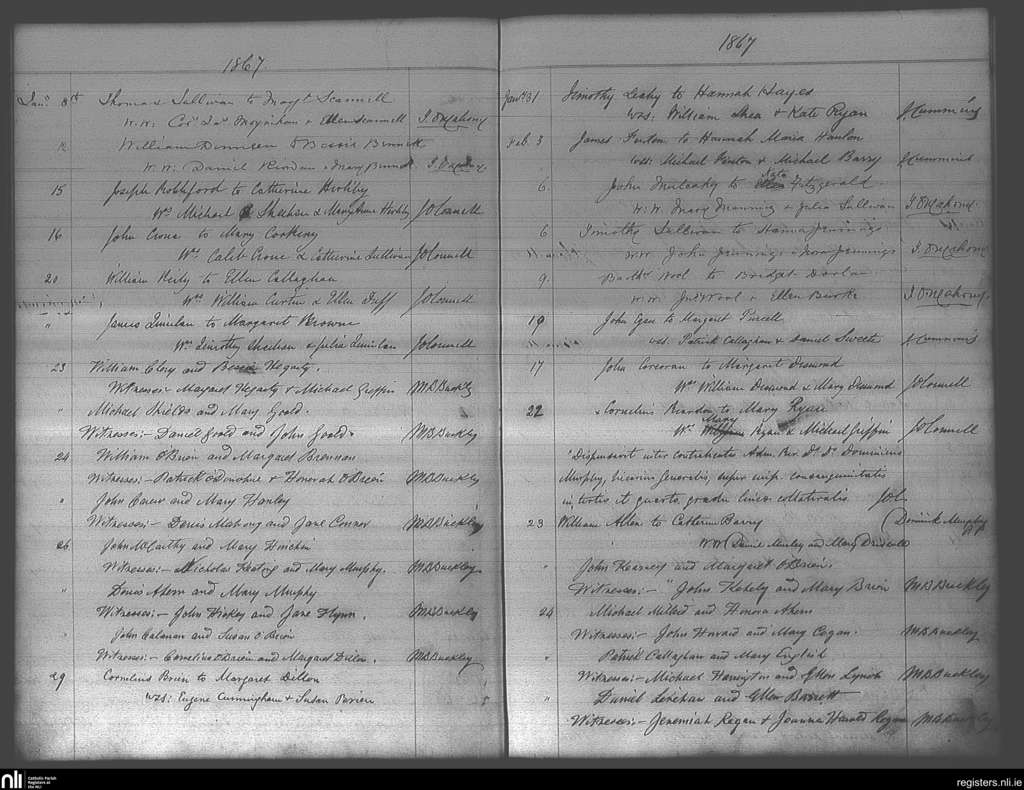 1867
Jany 8th Thomas Sullivan to Margt Scannell
W.W: Cors Jas Moynihan & Ellen Scannell J. OMahony
12 William to Bessie
W.W: Daniel Riordan & Mary
15 Joseph Rochford to Catherine
Ws Michael Sheehan & Mary Anne JO'Connell
16 John Crone to Mary Corkery
Ws Caleb Crone & Catherine Sullivan JO'Connell
20 William Reily to Ellen Callaghan
Ws William Curtin & Ellen Duff JO'Connell
" James Quinlan to Margaret Browne
Ws Timothy Sheehan & Julia Quinlan JO'Connell
23 William Clery and Bessie Hegarty.
Witnesses Margaret Hegarty & Michael Griffin MB Buckley
" Michael Shields and Mary Goold.
Witnesses:- Daniel Goold and John Goold. MB Buckley
24 William O'Brien and Margaret Brennan
Witnesses:- Patrick O'Donohue & Honorah O'Brien MB Buckley
" John Carew and Mary Hanley
Witnesses:- Denis Mahony and Jane Connor MB Buckley
26 John McCarthy and Mary
Witnesses:- Nicholas Keating and Mary Murphy. MB Buckley
" Denis Ahern and Mary Murphy
Witnesses:- John Hickey and Jane Flynn. MB Buckley
" John Calanan and Susan O'Brien
Witnesses:- Cornelius O'Brien and Margaret Dillon. MB Buckley
29 Cornelius Brien to Margaret Dillon
Wss: Eugene Cunningham & Susan
1867
Jany 31 Timothy Leahy to Hannah Hayes
Wss: William Shea & Kate Ryan J Cummins
Feb. 3 James Fenton to Hannah Maria Hanlon
Wss: Michael Fenton & Michael Barry J Cummins
6. John to Kate Fitzgerald.
W.W. Mary Manning & Julia Sullivan J. OMahony
6 Timothy Sullivan to Hanna Jennings
W.W. John Jennings & Nora Jennings J. OMahony
9. Barthw Wool to Bridget
W.W. Jno Wool & Ellen Burke J. OMahony.
10 John Egan to Margaret Purcell
Wss. Patrick Callaghan & Daniel Sweete J Cummins
17 John Corcoran to Margaret Desmond
Ws William Desmond & Mary Desmond JO'Connell
22 * Cornelius Riordan to Mary Ryan
Ws Mary Ryan & Michael Griffin JO'Connell
* Dispensavit inter contrahentes Adm. Rev. Ds Ds Dominicus
Murphy, Vicarius Generalis, super imp. consanguinitatis
in tertio et quarto gradu linea collateralis. JO'C
23 William Allen to Catherine Barry (Dominick Murphy
W.W (Daniel and Mary Driscoll
" John Kearney and Margaret O'Brien.
Witnesses:- John and Mary Brien MB Buckley
24 Michael Millerd and Honora Ahern
Witnesses:- John Howard and Mary Cagan. MB Buckley
" Patrick Callaghan and Mary English
Witnesses:- Michael Harrington and Ellen Lynch MB Buckley
" Daniel Lenehan and Ellen Barrett
Witnesses:- Jeremiah Regan & Joanna Harold Regan MB Buckley
nli
Catholic Parish
Registers at
the NLI
registers.nli.ie